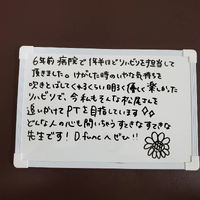 6年前 病院で1年半ほどリハビリを担当して
頂きました。けがした時のいやな気持ちを
吹きとばしてくれるくらい明るく優しく楽しかった
リハビリで、今私もそんな松尾さんを
追いかけてPTを目指しています◇◇
どんな人の心も開いちゃうすてきなすてきな
先生です! D.funcへぜひ!!